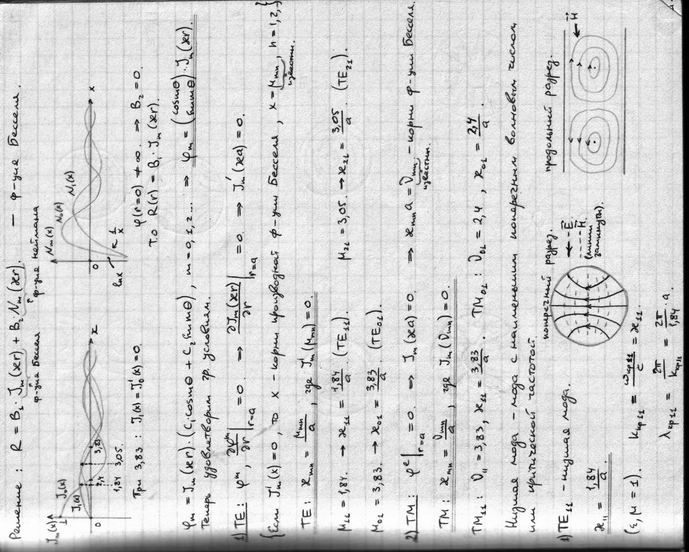 Решение: R = B₁ J_m(ær) + B₂ N_m(ær) — ф-ция Бесселя.
ф-ция Бесселя ф-ция Неймана
J_m(x) J₀(x) J₁(x) 0 1,84 2,4 3,05 3,83 x
N_m(x) N₀(x) N₁(x) 0 x ln x 1/x
При 3,83: J₁(x) = J₀'(x) = 0
φ(r=0) ≠ ∞ ⇒ B₂ = 0.
То R(r) = B₁ J_m(ær).
φ_m = J_m(ær)·(C₁cos mθ + C₂ sin mθ), m = 0, 1, 2... ⇒ φ_m = (cos mθ / sin mθ)·J_m(ær).
Теперь удовлетворим гр. условиям.
1) TE: φ^m, ∂φ^m/∂r |_{r=a} = 0 ⇒ ∂J_m(ær)/∂r |_{r=a} = 0 ⇒ J_m'(æa) = 0.
{Если J_m'(x) = 0, то x - корни производной ф-ции Бесселя, x = μ_mn, n = 1, 2, }
известны.
TE: æ_mn = μ_mn/a, где J_m'(μ_mn) = 0.
μ₁₁ = 1,84. → æ₁₁ = 1,84/a (TE₁₁) μ₂₁ = 3,05. → æ₂₁ = 3,05/a. (TE₂₁).
μ₀₁ = 3,83. → æ₀₁ = 3,83/a (TE₀₁)
2) TM: φ^e|_{r=a} = 0 ⇒ J_m(æa) = 0 ⇒ æ_mn a = ν_mn - корни ф-ции Бесселя.
известны
TM: æ_mn = ν_mn/a, где J_m(ν_mn) = 0.
TM₁₁: ν₁₁ = 3,83, æ₁₁ = 3,83/a. TM₀₁: ν₀₁ = 2,4, æ₀₁ = 2,4/a.
Низшая мода - мода с наименьшим поперечным волновым числом,
или критической частотой.
1) TE₁₁ - низшая мода. поперечный разрез. продольный разрез.
æ₁₁ = 1,84/a ← E
-- H
(линии замкнуты). H
(ε, μ = 1). k_кр11 = ω_кр11/c = æ₁₁.
λ_кр11 = 2π/k_кр11 = 2π/1,84 · a.